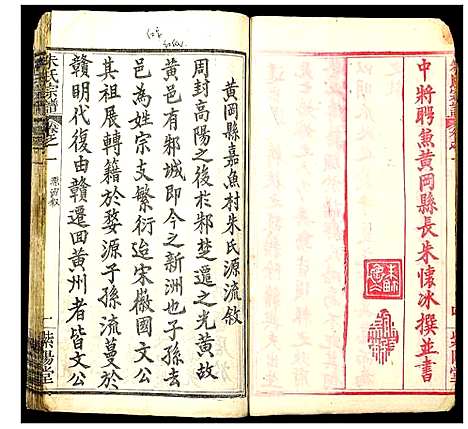 中將聘兼黃岡縣長朱懷冰撰並書
黃岡縣嘉魚村朱氏源流敘
周封高陽之後於邾楚遷之光黃故
黃邑有邾城即今之新洲也子孫去
邑為姓宗支繁衍迨宋徽國文公
其祖展轉籍於婺源子孫流蔓於
贛明代復由贛遷回黃州者皆文公
朱氏宗譜
卷之一
二 紫陽堂